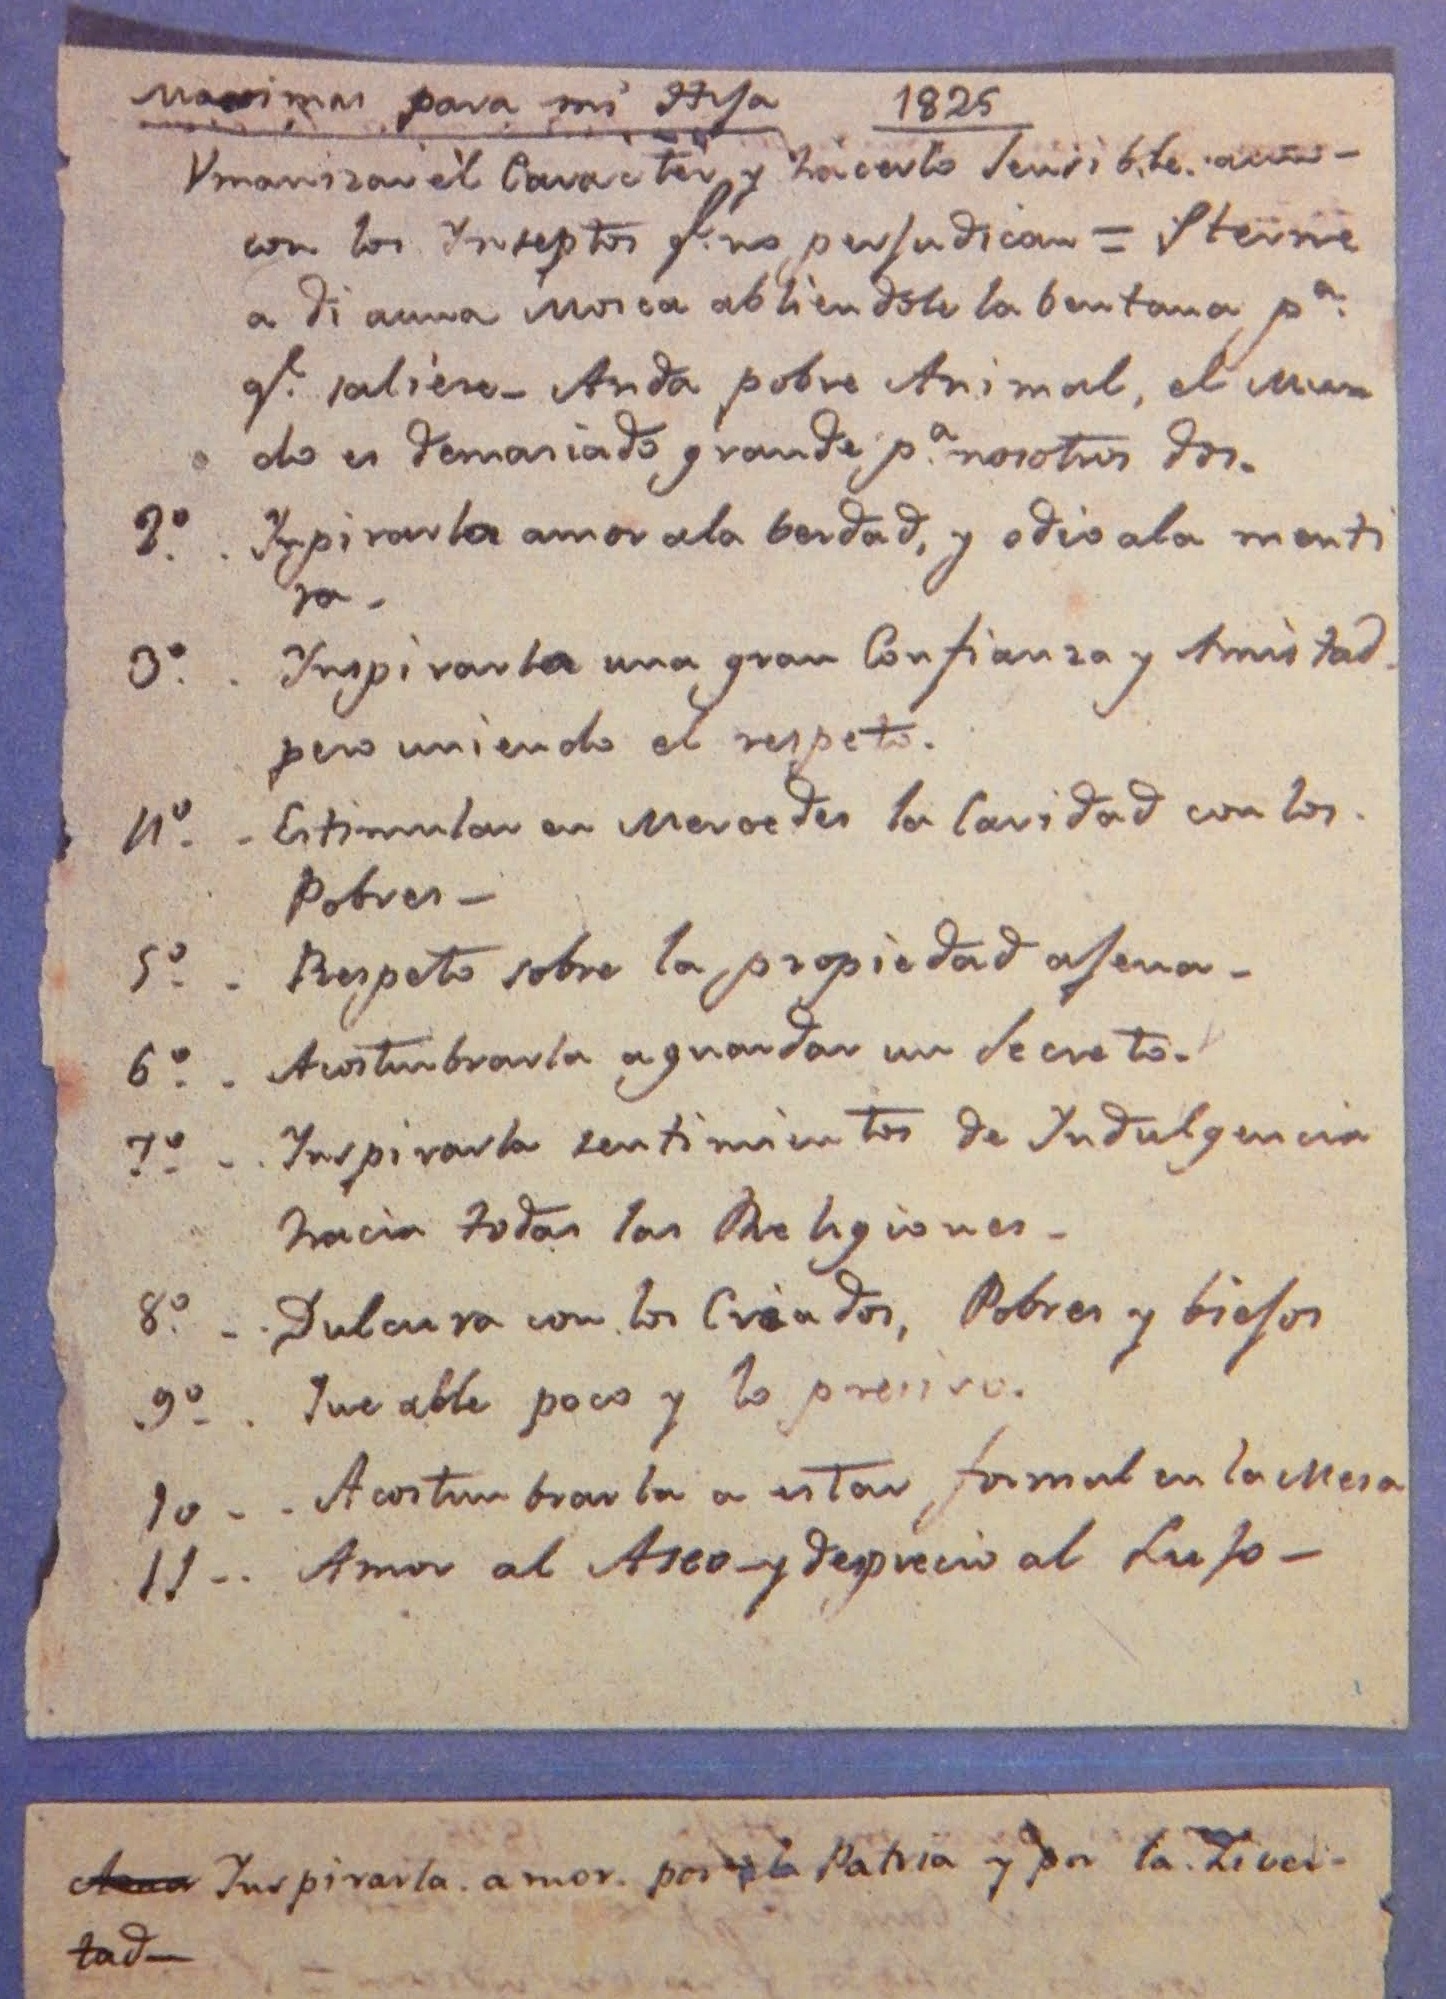 Maximas para mi Hija 1825
Vmanizar él Caracter y hacerlo sensible. aun-
con los Inseptos q.e no perjudican = Sterne
a di auna Mosca abriendole la bentana p.a
q.e saliese - Anda pobre Animal, el Mun
do es demasiado grande p.a nosotros dos.
2.º . Inpirarla amor ala berdad, y odio ala menti
ra -
3.º . Inspirarla una gran Confianza y Amistad
pero uniendo el respeto.
4.º - Estimular en Mercedes la Caridad con los
Pobres -
5.º - Respeto sobre la propiedad ajena -
6.º - Acostumbrarla aguardar un secreto.
7.º - Inspirarla sentimientos de Indulgencia
hacia todas las Religiones -
8.º - Dulcura con los Criados, Pobres y biejos
9.º . Que able poco y lo presiso.
10 - - Acostumbrarla a estar formal en la Mesa
11 - . Amor al Aseo - y desprecio al Lujo -
Inspirarla. amor. por la Patria y por la Liver-
tad -